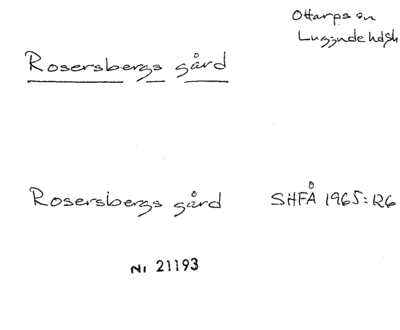 Ottarps sn
Luggude hdsk
Rosersbergs gård
Rosersbergs gård SHFÅ 1965:126
NI 21193